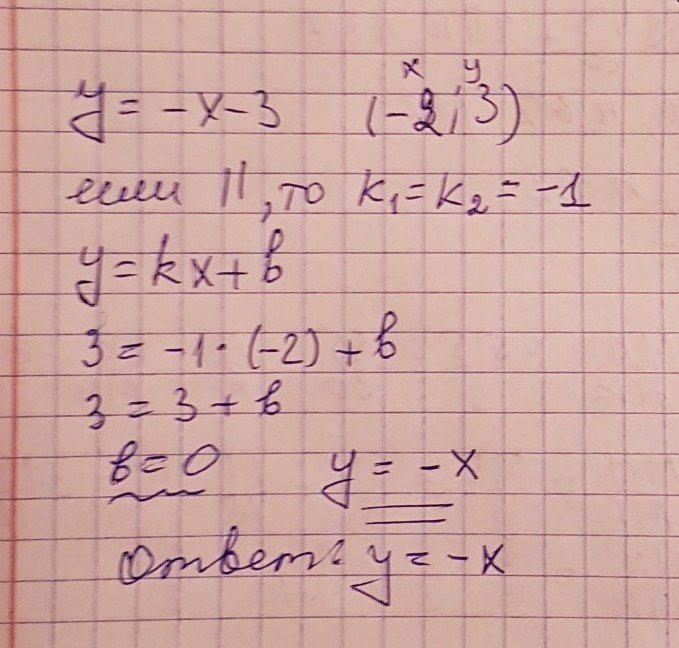 x y
y = -x-3 (-2; 3)
если ||, то k₁=k₂ = -1
y = kx + b
3 = -1 · (-2) + b
3 = 3 + b
b = 0 y = -x
Ответ: y = -x